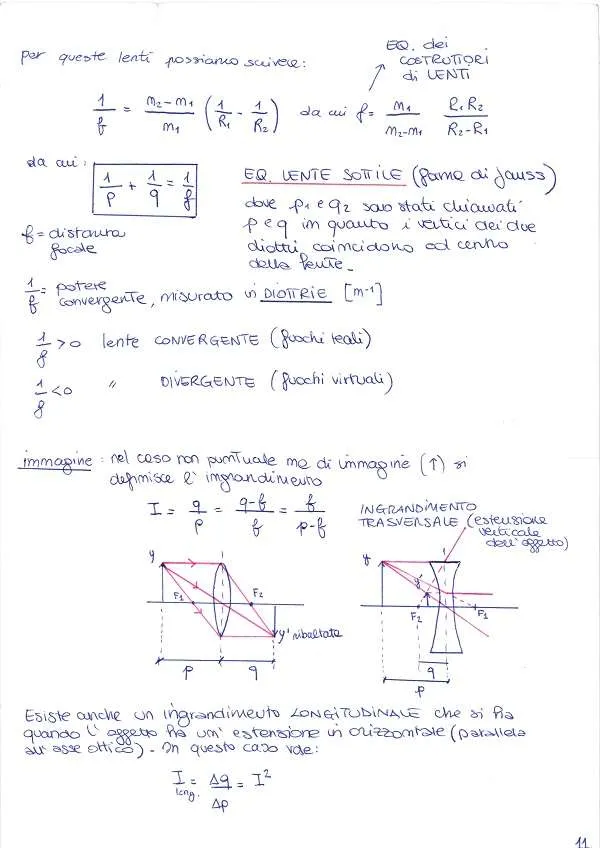 EQ. dei
COSTRUTTORI
di LENTI
per queste lenti possiamo scrivere:
1/f = n2-n1/n1 (1/R1 - 1/R2) da cui f = n1/n2-n1 R1R2/R2-R1
da cui: 1/p + 1/q = 1/f
EQ. LENTE SOTTILE (forma di Gauss)
dove p1 e q2 sono stati chiamati
p e q in quanto i vertici dei due
diottri coincidono col centro
della lente.
f = distanza
focale
1/f = potere
convergente, misurato in DIOTTRIE [m-1]
1/f > 0 lente CONVERGENTE (fuochi reali)
1/f < 0 " DIVERGENTE (fuochi virtuali)
immagine: nel caso non puntuale ma di immagine (↑) si
definisce l' ingrandimento
I = q/p = q-f/f = f/p-f
INGRANDIMENTO
TRASVERSALE (estensione
verticale
dell'oggetto)
y
F1
F2
y' ribaltata
p
q
y
y'
F2
F1
q
p
Esiste anche un ingrandimento LONGITUDINALE che si ha
quando l'oggetto ha un' estensione in orizzontale (parallela
all'asse ottico). In questo caso vale:
I long. = Δq/Δp = I²
11